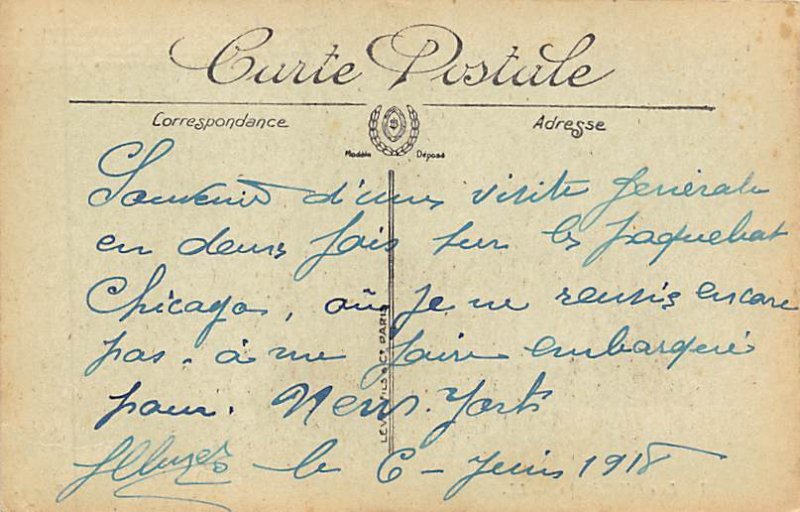 Carte Postale
Correspondance
Adresse
Modèle Déposé
LEVY FILS & Cie PARIS
Souvenir d'une visite générale
en deux fois sur le paquebat
Chicago, où je ne reusis encore
pas. à me faire embarquer
pour. New. York
le 6 - Juin 1918